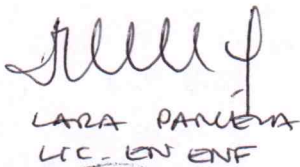 LARA PARCERA
LIC. EN ENF